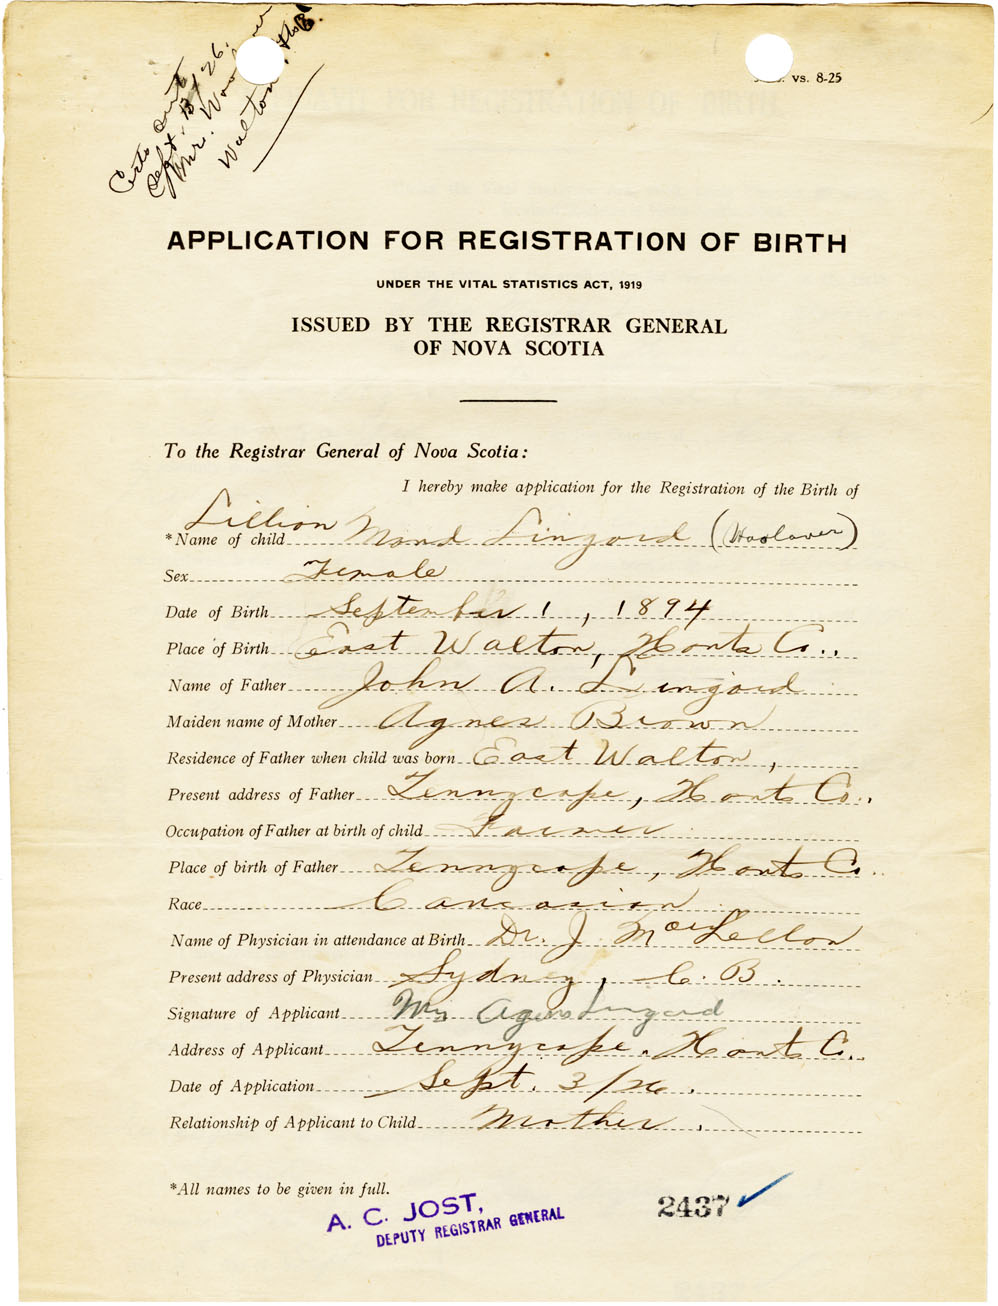 Certs sent
Sept. 13/26.
Mrs. Woolaver
Walton, Hants
vs. 8-25
APPLICATION FOR REGISTRATION OF BIRTH
UNDER THE VITAL STATISTICS ACT, 1919
ISSUED BY THE REGISTRAR GENERAL
OF NOVA SCOTIA
To the Registrar General of Nova Scotia:
I hereby make application for the Registration of the Birth of
*Name of child Lillian Maud Lingard (Woolaver)
Sex Female
Date of Birth September 1, 1894
Place of Birth East Walton, Hants Co..
Name of Father John A. Lingard
Maiden name of Mother Agnes Brown
Residence of Father when child was born East Walton,
Present address of Father Tennycape, Hants Co..
Occupation of Father at birth of child Farmer
Place of birth of Father Tennycape, Hants Co.
Race Caucasian
Name of Physician in attendance at Birth Dr. J MacLellan
Present address of Physician Sydney, C. B.
Signature of Applicant Mrs Agnes Lingard
Address of Applicant Tennycape, Hants Co..
Date of Application Sept. 3/26.
Relationship of Applicant to Child Mother.
*All names to be given in full.
A. C. JOST,
DEPUTY REGISTRAR GENERAL
2437